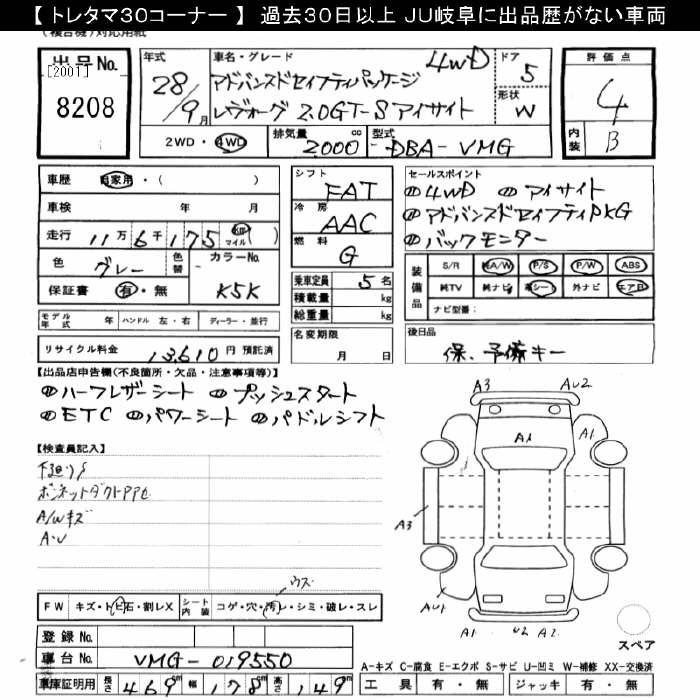 【 トレタマ30コーナー 】 過去30日以上 JU岐阜に出品歴がない車両
(複合機)対応用紙
出品No.
[2001]
8208
年式
28/9月
車名・グレード
アドバンスドセイフティパッケージ 4WD
レヴォーグ 2.0GT-S アイサイト
ドア
5
形状
W
評価点
4
内装
B
2WD・4WD
排気量
2000 cc
型式
DBA-VMG
車歴 自家用・( )
車検 年 月
走行 11万6千175 km マイル( )
色 グレー 色替
カラーNo.
K5K
保証書 有・無
モデル年式 年 ハンドル 左・右 ディーラー・並行
リサイクル料金 13,610 円 預託済
シフト
FAT
冷房
AAC
燃料
G
乗車定員 5 名
積載量 kg
総重量 kg
名変期限
月 日
セールスポイント
4WD アイサイト
アドバンスドセイフティPKG
バックモニター
装備品
S/R 純A/W P/S P/W ABS
純TV 純ナビ 革シート 外ナビ エアB
ナビ型番:
後日品
保、予備キー
【出品店申告欄(不良箇所・欠品・注意事項等)】
ハーフレザーシート プッシュスタート
ETC パワーシート パドルシフト
【検査員記入】
下廻りS
A/Wキズ
A・U
ウス
FW キズ・トビ石・割レX シート内装 コゲ・穴・汚レ・シミ・破レ・スレ
登録No.
車台No. VMG-019550
車庫証明用 長さ 469 cm 幅 178 cm 高さ 149 cm
A3 AU2
A1 A1
A3
AU1
A1 U2 A2
スペア
A-キズ C-腐食 E-エクボ S-サビ U-凹ミ W-補修 XX-交換済
工具 有・無 ジャッキ 有・無